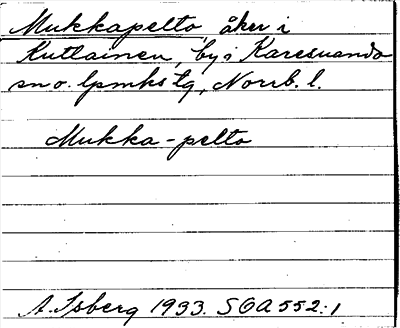 Mukkapelto, åker i
Kuttainen, by i Karesuando
sn o. lpmks tg, Norrb. l.
Mukka-pelto
A. Isberg 1933. SOA 552:1